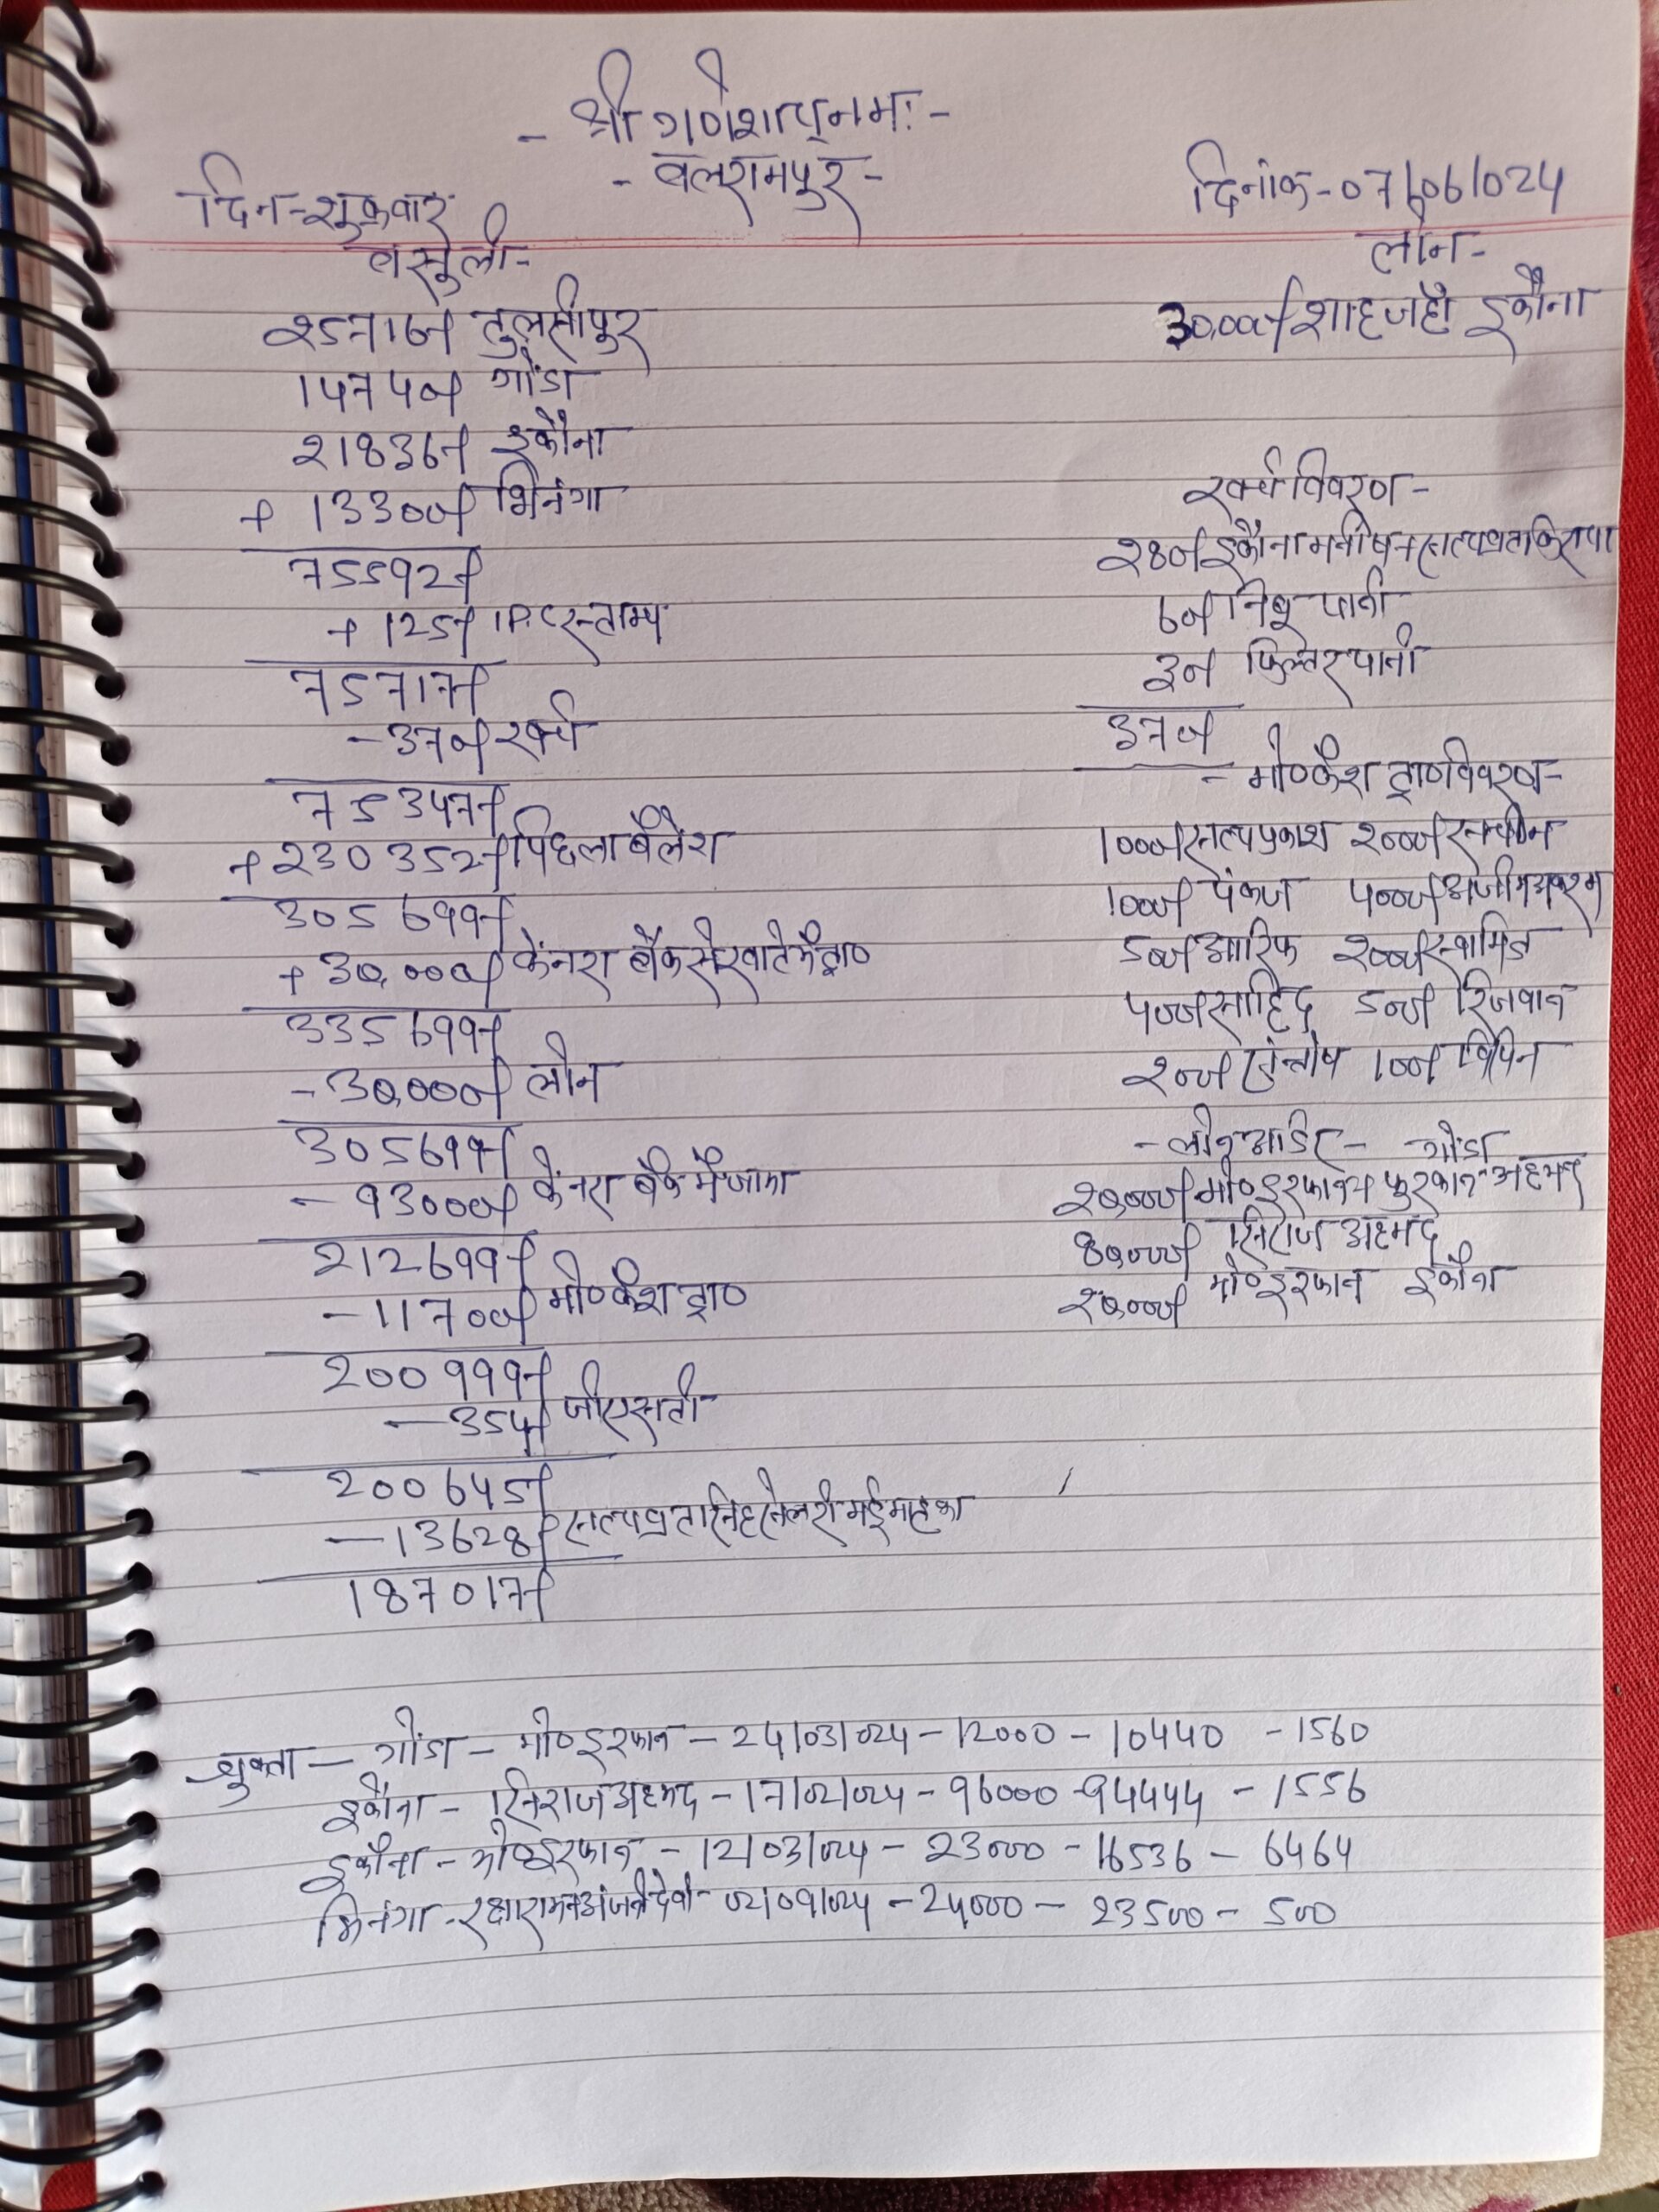 - श्री गणेशाय् नमः -
- बलरामपुर -
दिन-शुक्रवार
दिनांक-07/06/024
वसूली-
25716/- तुलसीपुर
14740/- गोंडा
21836/- इकौना
+ 13300/- भिनगा
75592/-
+ 125/- I.P.C स्टाम्प
75717/-
- 370/- खर्च
75347/-
+ 230352/- पिछला बैलेंश
305699/-
+ 30,000/- केनरा बैंक से खाते में ट्रा०
335699/-
- 30,000/- लोन
305699/-
- 93000/- केनरा बैंक मे जमा
212699/-
- 11700/- मो० कैश ट्रा०
200999/-
- 354/- जीएसटी
200645/-
- 13628/- सत्यव्रत सिंह सेलरी मई माह का
187017/-
लोन-
30,000/- शाहजहाँ इकौना
खर्च विवरण-
280/- इकौना मनीष व सत्यव्रत किराया
60/- निबू पानी
30/- फिल्टर पानी
370/-
- मो० कैश ट्रा० विवरण-
1000/- सत्यप्रकाश 2000/- सचीन
1000/- पंकज 4000/-
500/- आरिफ 2000/-
400/- साहिद 500/- रिजवान
200/- संन्तोष 100/- विपिन
- लोन आर्डर - गोंडा
20,000/- मो० इरफान व फुरकान अहमद
80,000/- सिराज अहमद
20,000/- मो० इरफान इकौना
चुक्ता - गोंडा - मो० इरफान - 24/03/024 - 12000 - 10440 - 1560
इकौना - सिराज अहमद - 17/02/024 - 96000 - 94444 - 1556
इकौना - मो० इरफान - 12/03/024 - 23000 - 16536 - 6464
भिनगा - रक्षाराम व अंजनी देवी 02/09/024 - 24000 - 23500 - 500